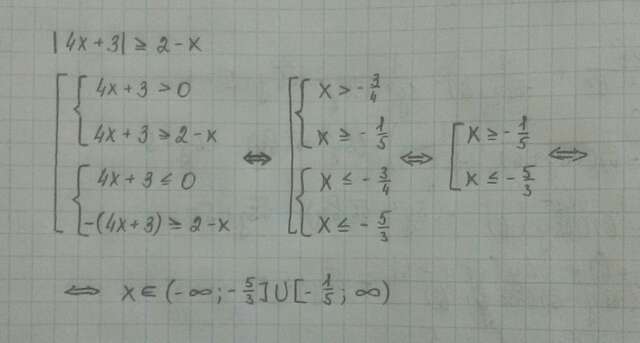 |4x+3| ≥ 2-x
[ { 4x+3>0
4x+3≥2-x
{ 4x+3≤0
-(4x+3)≥2-x
⇔ [ { x>-3/4
x≥-1/5
{ x≤-3/4
x≤-5/3
⇔ [ x≥-1/5
x≤-5/3 ⇔
⇔ x∈(-∞;-5/3]∪[-1/5;∞)